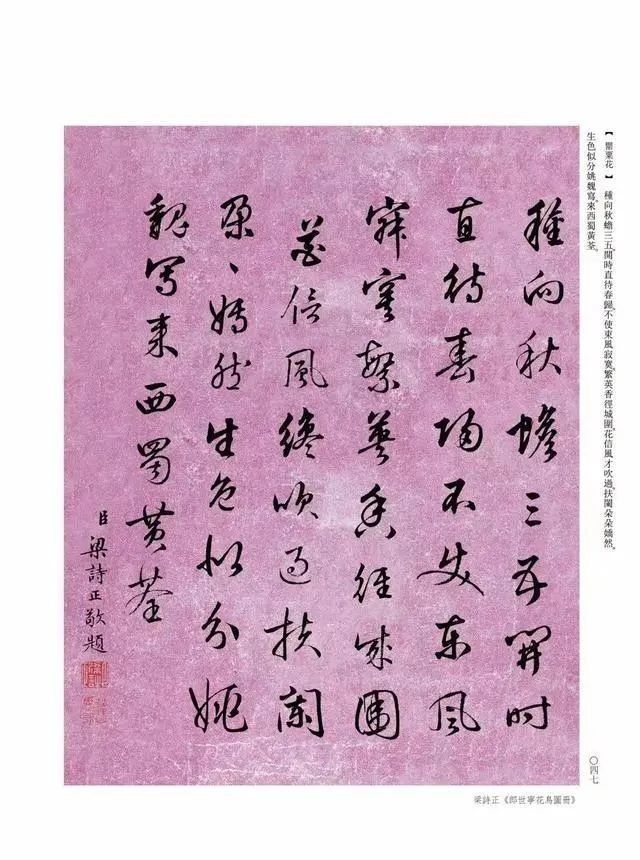 【罌粟花】 種向秋蟾三五開時直待春歸。不使東風寂寞。繁英香徑城圍。花信風才吹過。扶闌朵朵嬌然。
生色似分姚魏。寫來西蜀黃荃。
種向秋蟾三五開时
直待春歸不使東風
寂寞繁英香徑成圍
花信風纔吹過扶闌
朵〻嫣然生色似分姚
魏寫來西蜀黄荃
臣梁詩正敬題
〇四七
梁詩正《郎世寧花鳥圖冊》